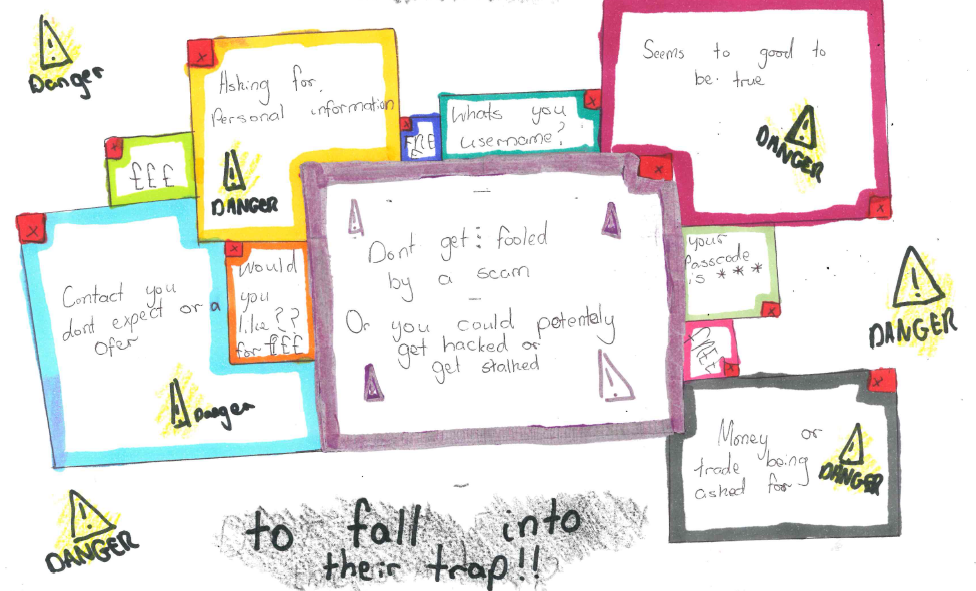 Danger
Asking for
Personal information
DANGER
£££
FREE
Whats you
username?
Seems to good to
be true
DANGER
Contact you
dont expect or a
Ofer
Danger
Would
you
like??
for £££
Dont get fooled
by a scam
Or you could potentely
get hacked or
get stalked
your
Passcode
is ***
FREE
DANGER
Money or
trade being
asked for
DANGER
DANGER
to fall into
their trap!!